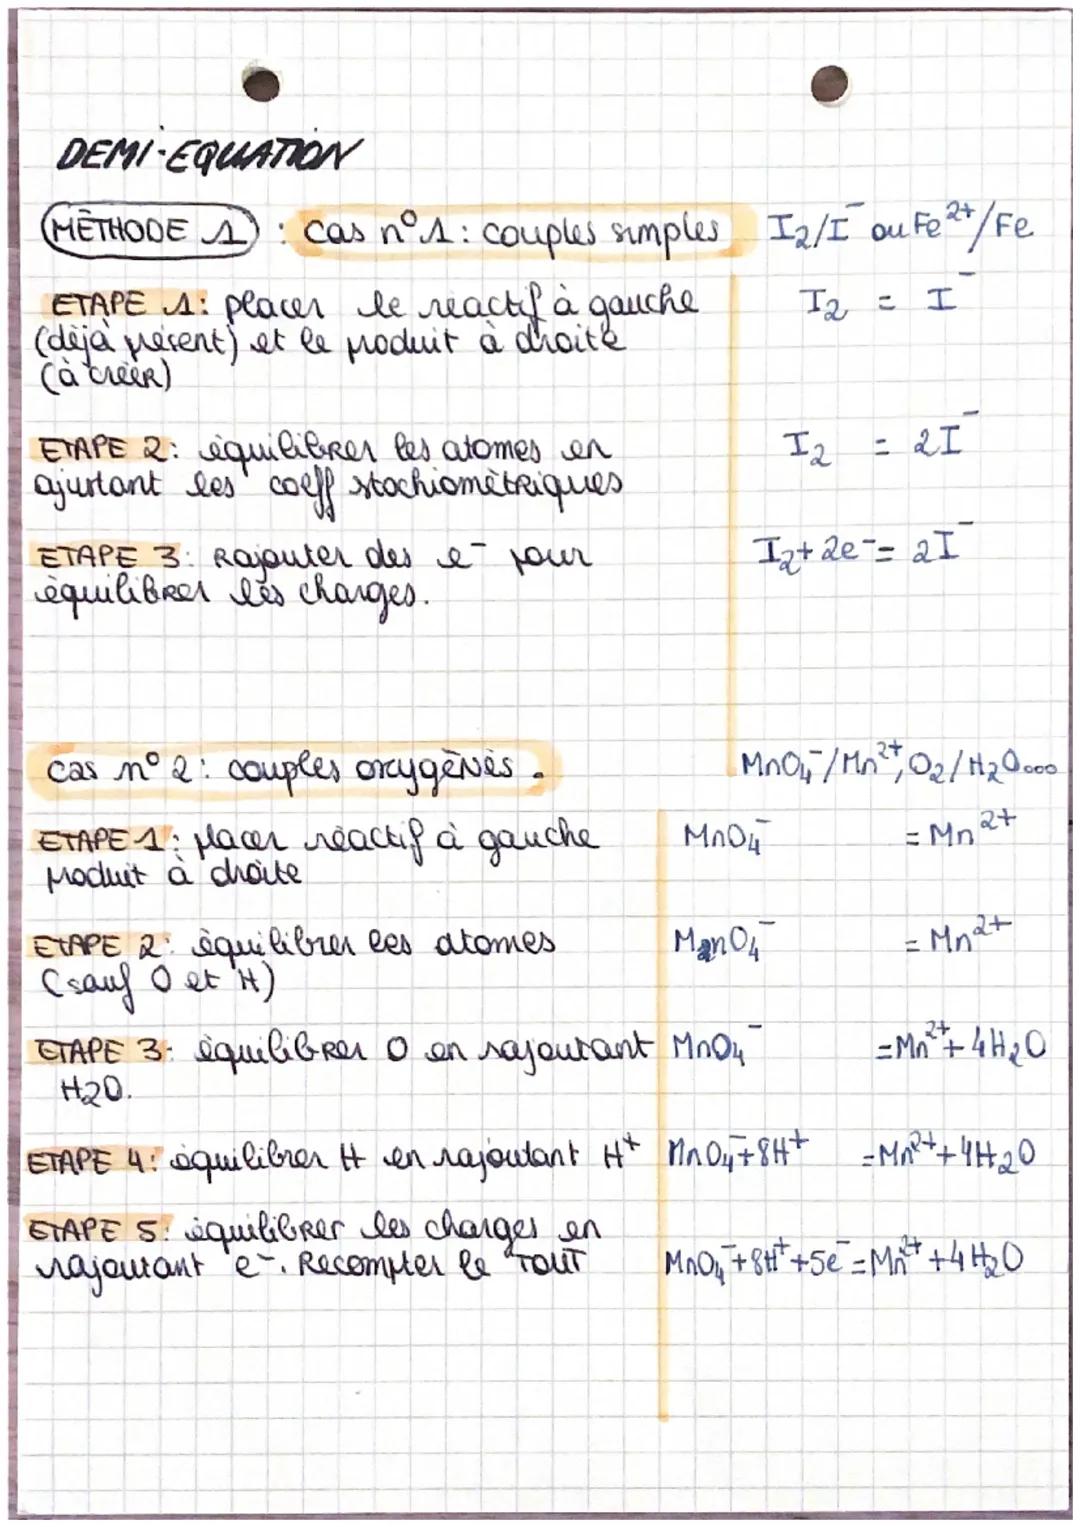 DEMI-EQUATION
MÉTHODE 1 : cas n°1 : couples simples I₂/I⁻ ou Fe²⁺/Fe
ETAPE 1: placer le réactif à gauche I₂ = I⁻
(déjà présent) et le produit à droite
(à créer)
ETAPE 2: équilibrer les atomes en I₂ = 2I⁻
ajustant les coeff stochiométriques
ETAPE 3: Rajouter des e⁻ pour I₂ + 2e⁻ = 2I⁻
équilibrer les charges.
cas n°2 : couples oxygénés. MnO₄⁻/Mn²⁺, O₂/H₂O...
ETAPE 1: placer réactif à gauche MnO₄⁻ = Mn²⁺
produit à droite
ETAPE 2: équilibrer les atomes MnO₄⁻ = Mn²⁺
(sauf O et H)
ETAPE 3: équilibrer O en rajoutant MnO₄⁻ = Mn²⁺ + 4H₂O
H2O.
ETAPE 4: équilibrer H en rajoutant H⁺ MnO₄⁻ + 8H⁺ = Mn²⁺ + 4H₂O
ETAPE 5: équilibrer les charges en
rajoutant e⁻. Recompter le TOUT MnO₄⁻ + 8H⁺ + 5e⁻ = Mn²⁺ + 4H₂O